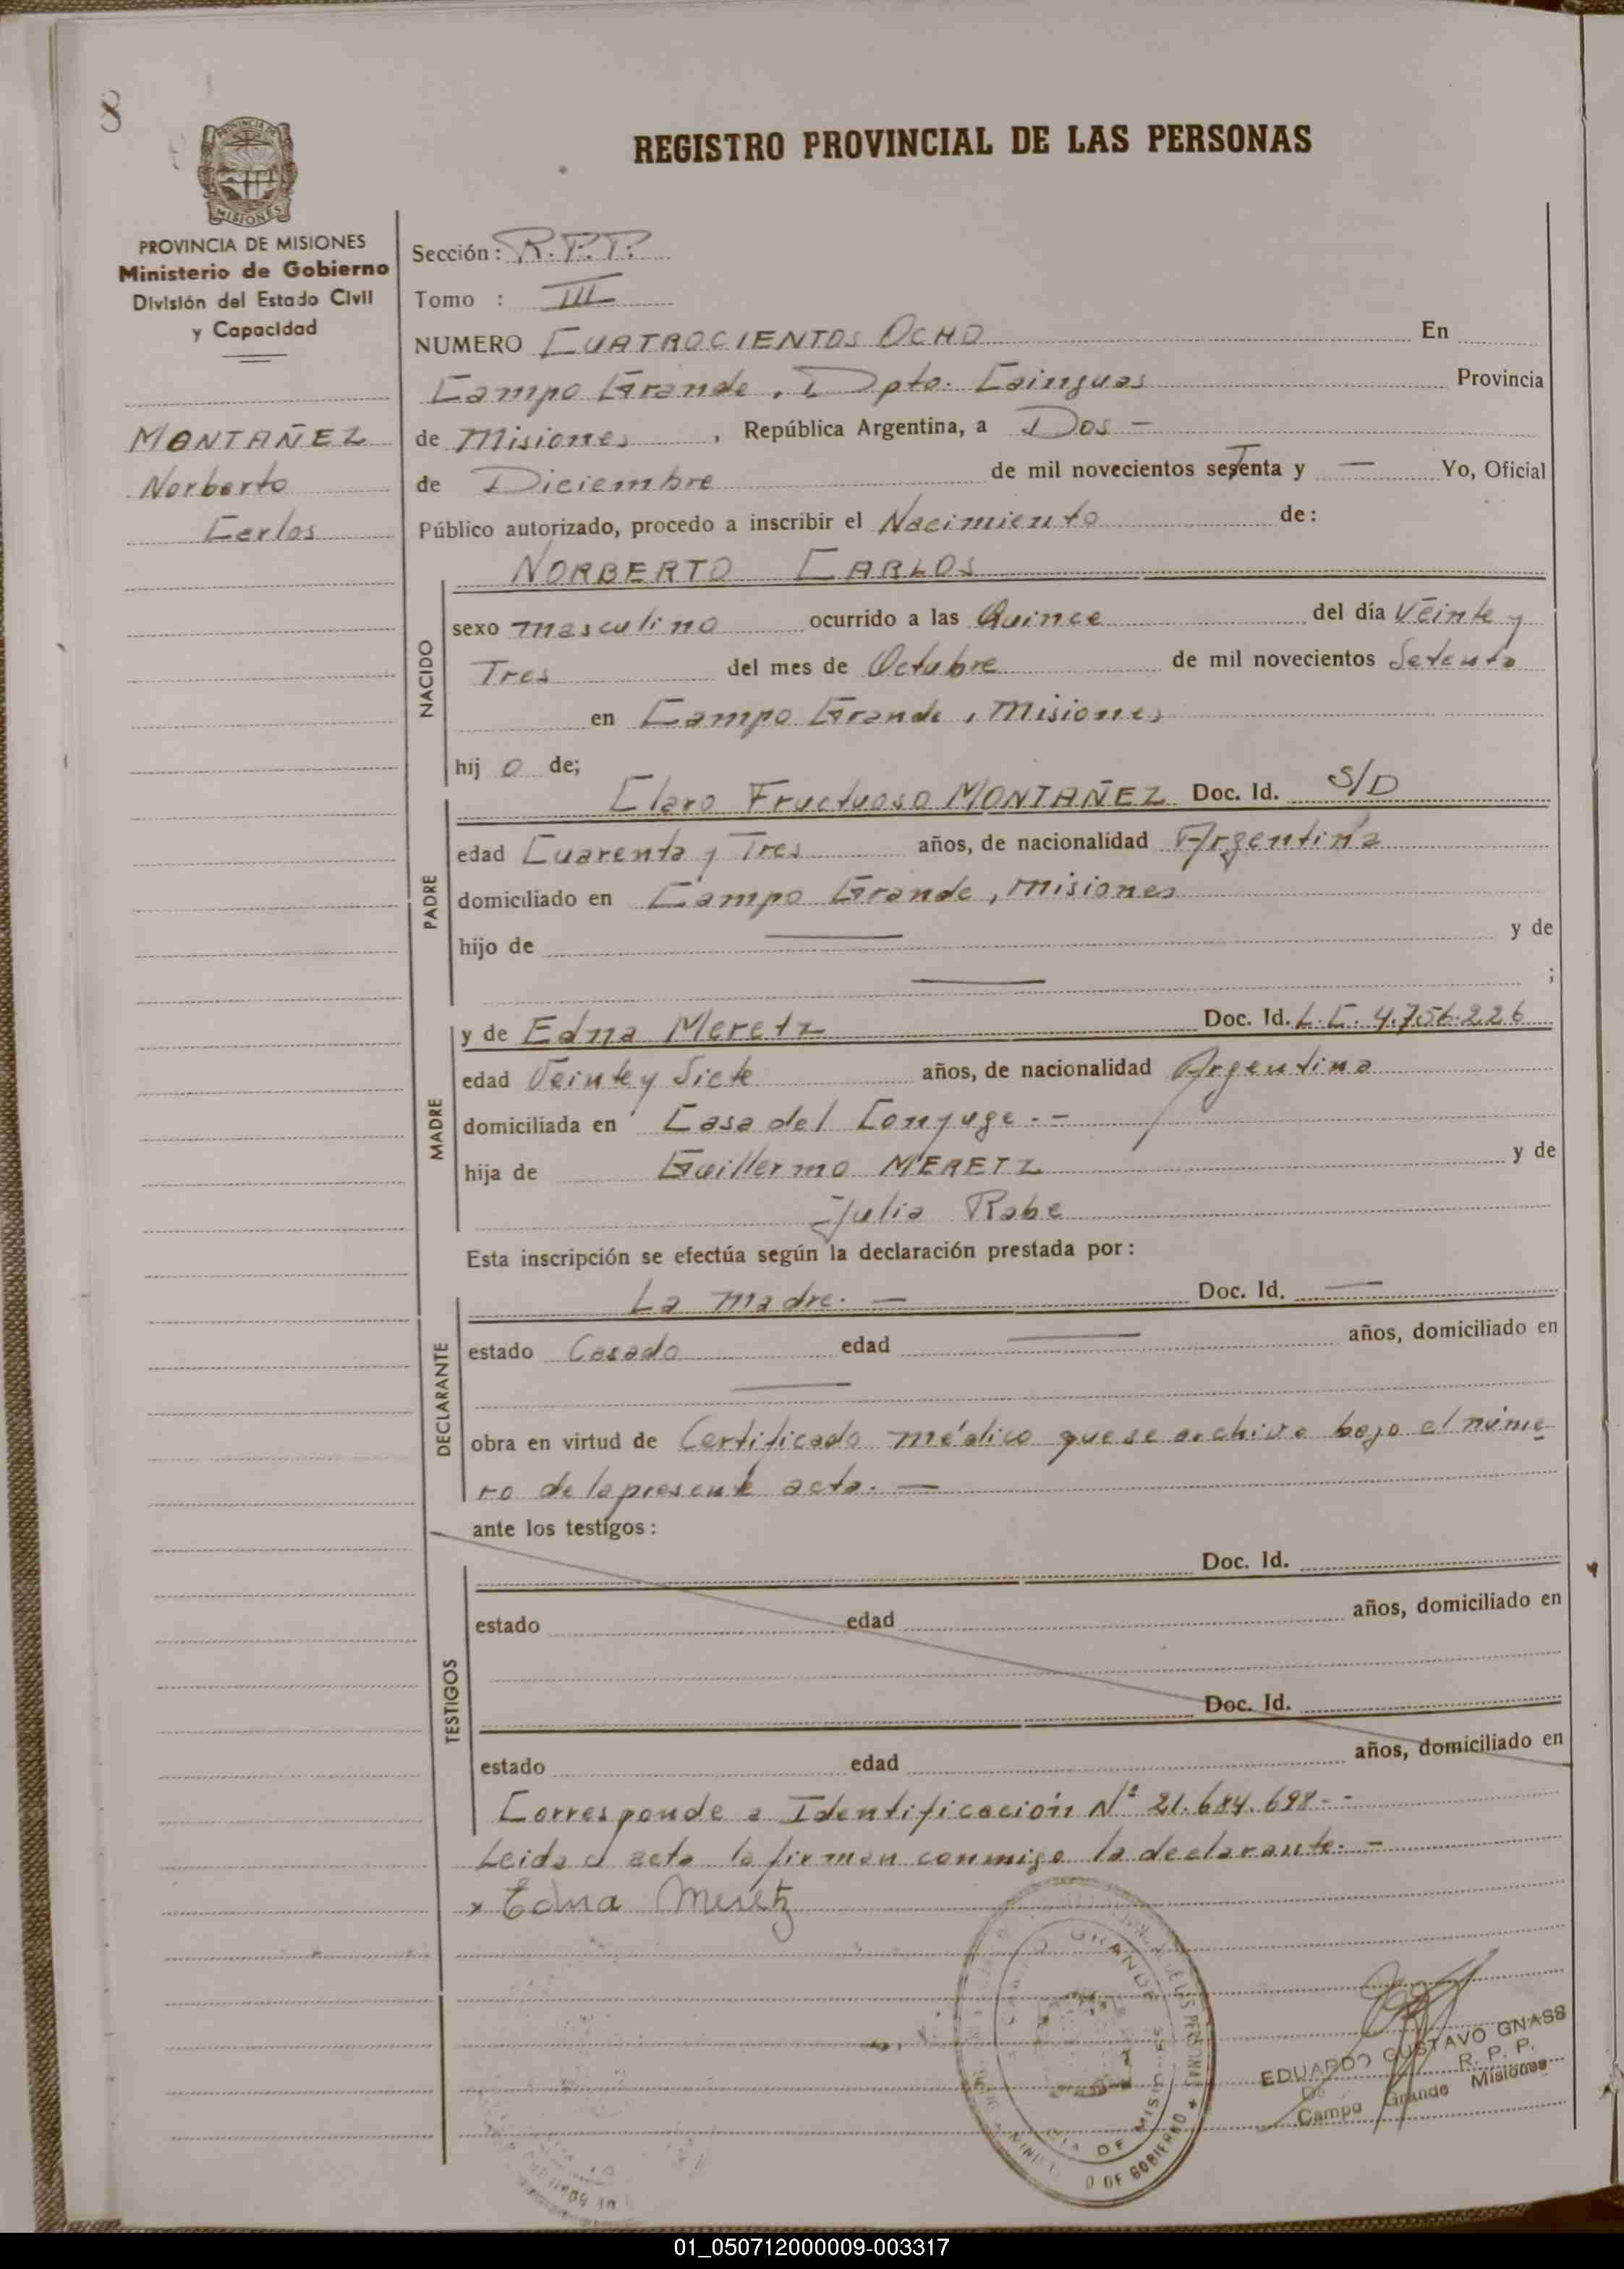 8
REGISTRO PROVINCIAL DE LAS PERSONAS
PROVINCIA DE MISIONES
Ministerio de Gobierno
División del Estado Civil
y Capacidad
MONTAÑEZ
Norberto
Carlos
Sección: R.P.P.
Tomo : III
NUMERO CUATROCIENTOS OCHO En
Campo Grande, Dpto. Cainguas Provincia
de Misiones, República Argentina, a Dos -
de Diciembre de mil novecientos setenta y — Yo, Oficial
Público autorizado, procedo a inscribir el Nacimiento de:
NORBERTO CARLOS
NACIDO
sexo masculino ocurrido a las Quince del día Veinte y
Tres del mes de Octubre de mil novecientos Setenta
en Campo Grande, Misiones
hij o de;
PADRE
Claro Fructuoso MONTAÑEZ Doc. Id. S/D
edad Cuarenta y Tres años, de nacionalidad Argentina
domiciliado en Campo Grande, Misiones
hijo de — y de
— ;
MADRE
y de Edna Meretz Doc. Id. L.C. 4.756.226
edad Veinte y Siete años, de nacionalidad Argentina
domiciliada en Casa del Conyuge.-
hija de Guillermo MERETZ y de
Julia Rabe
Esta inscripción se efectúa según la declaración prestada por:
DECLARANTE
La madre. — Doc. Id. —
estado Casado edad — años, domiciliado en
—
obra en virtud de Certificado médico que se archiva bajo el núme-
ro de la presente acta. —
ante los testigos:
TESTIGOS
Doc. Id.
estado edad años, domiciliado en
Doc. Id.
estado edad años, domiciliado en
Corresponde a Identificación Nº 21.684.698--
Leida el acta la firman conmigo la declarante.-
x Edna Meretz
GRANDE
DE LAS PERSONAS
DE MISIONES
DE GOBIERNO
EDUARDO GUSTAVO GNASS
R. P. P.
Campo Grande Misiones
01_050712000009-003317